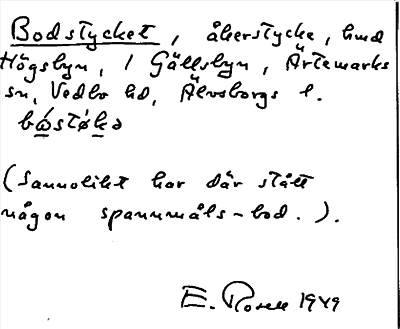 Bodstycket, åkerstycke, hmd
Högsbyn, 1 Gällsbyn, Ärtemarks
sn, Vedbo hd, Älvsborgs l.
(Sannolikt har där stått
någon spannmåls-bod.).
E. Rosen 1949